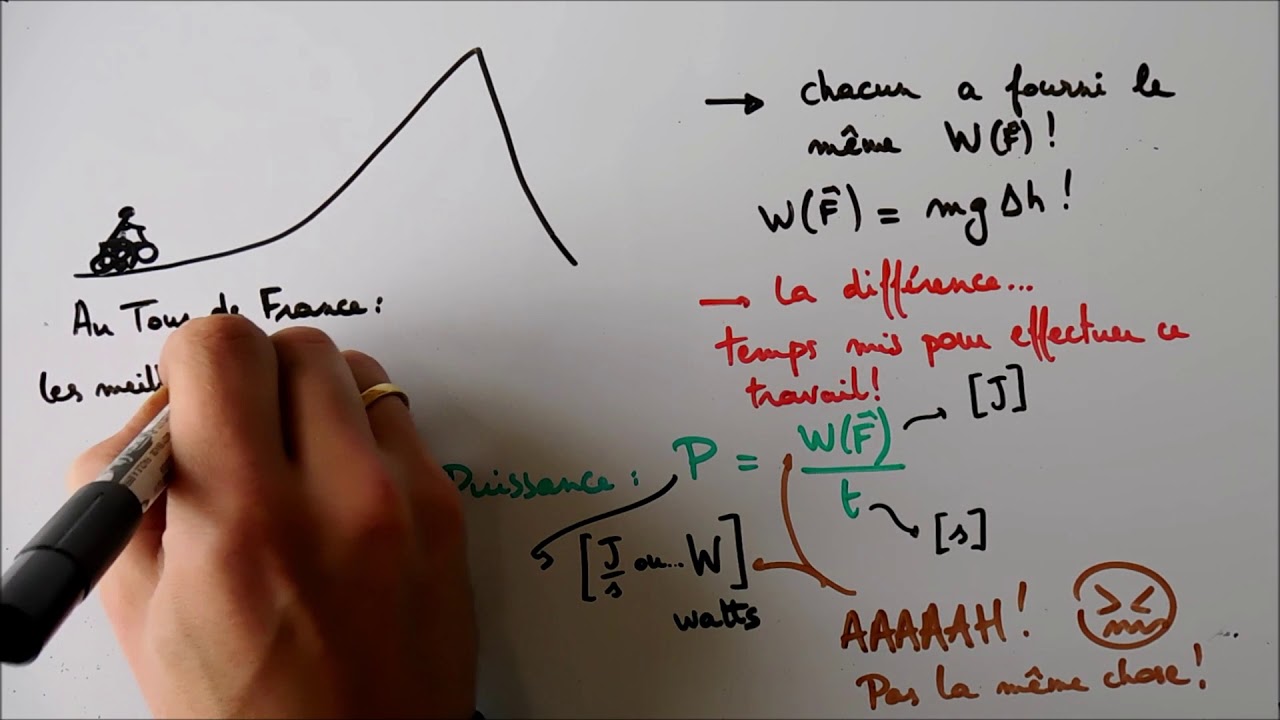 Au Tour de France:
les meill
→ chacun a fourni le
même W(F⃗)!
W(F⃗) = mgΔh!
→ la différence...
temps mis pour effectuer ce
travail!
Puissance: P = W(F⃗)/t
[J]
[s]
[J/s ou... W]
watts
AAAAAH!
Pas la même chose!